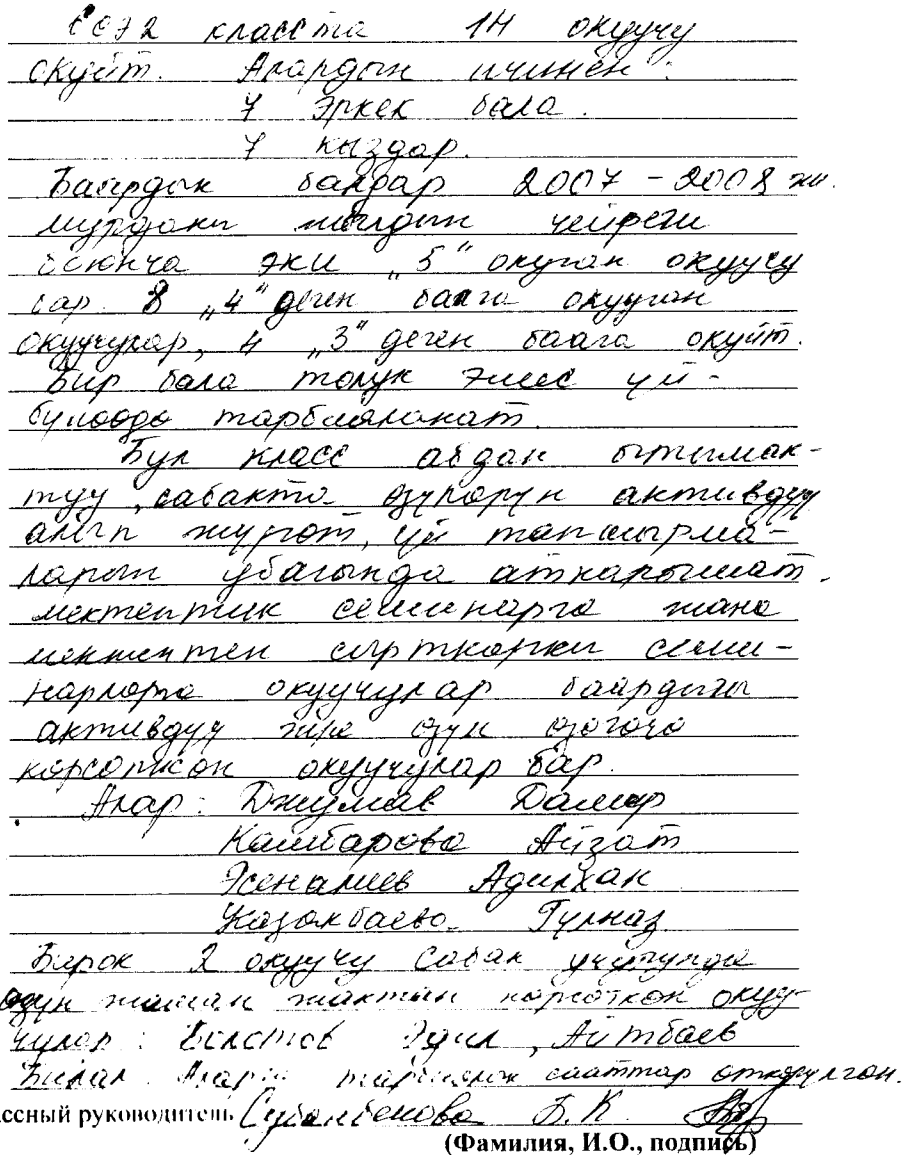 класста 14 окуучу
окуйт. Алардын ичинен:
7 эркек бала.
7 кыздар.
балдар 2007 - 2008 ж.
мурдакы жылдын чейреги
боюнча эки „5" окуган окуучу
бар. 8 „4" деген баага окууган
окуучулар, 4 „3" деген баага окуйт.
Бир бала толук эмес үй-
бүлөөдө тарбияланат.
Бул класс абдан ынтымак-
туу, сабакта өзүлөрүн активдүү
алып жүрөт, үй тапшырма-
ларын убагында аткарышат.
мектептик семинарга жана
мектептен сырткаркы семи-
нарларга окуучулар баардыгы
активдүү өзүн өзөгөчө
көрсөткөн окуучулар бар.
Алар: Джумаев Дамир
Камбарова Айзат
Эсеналиев Адилхан
Казакбаева Гулназ
Бирок 2 окуучу сабак учурунда
өзүн жаман жактан көрсөткөн окуу-
чулар: Болотов Эдил, Айтбаев
Билал. сааттар өткөрүлгөн.
ссный руководитель Субанбекова Б.К.
(Фамилия, И.О., подпись)